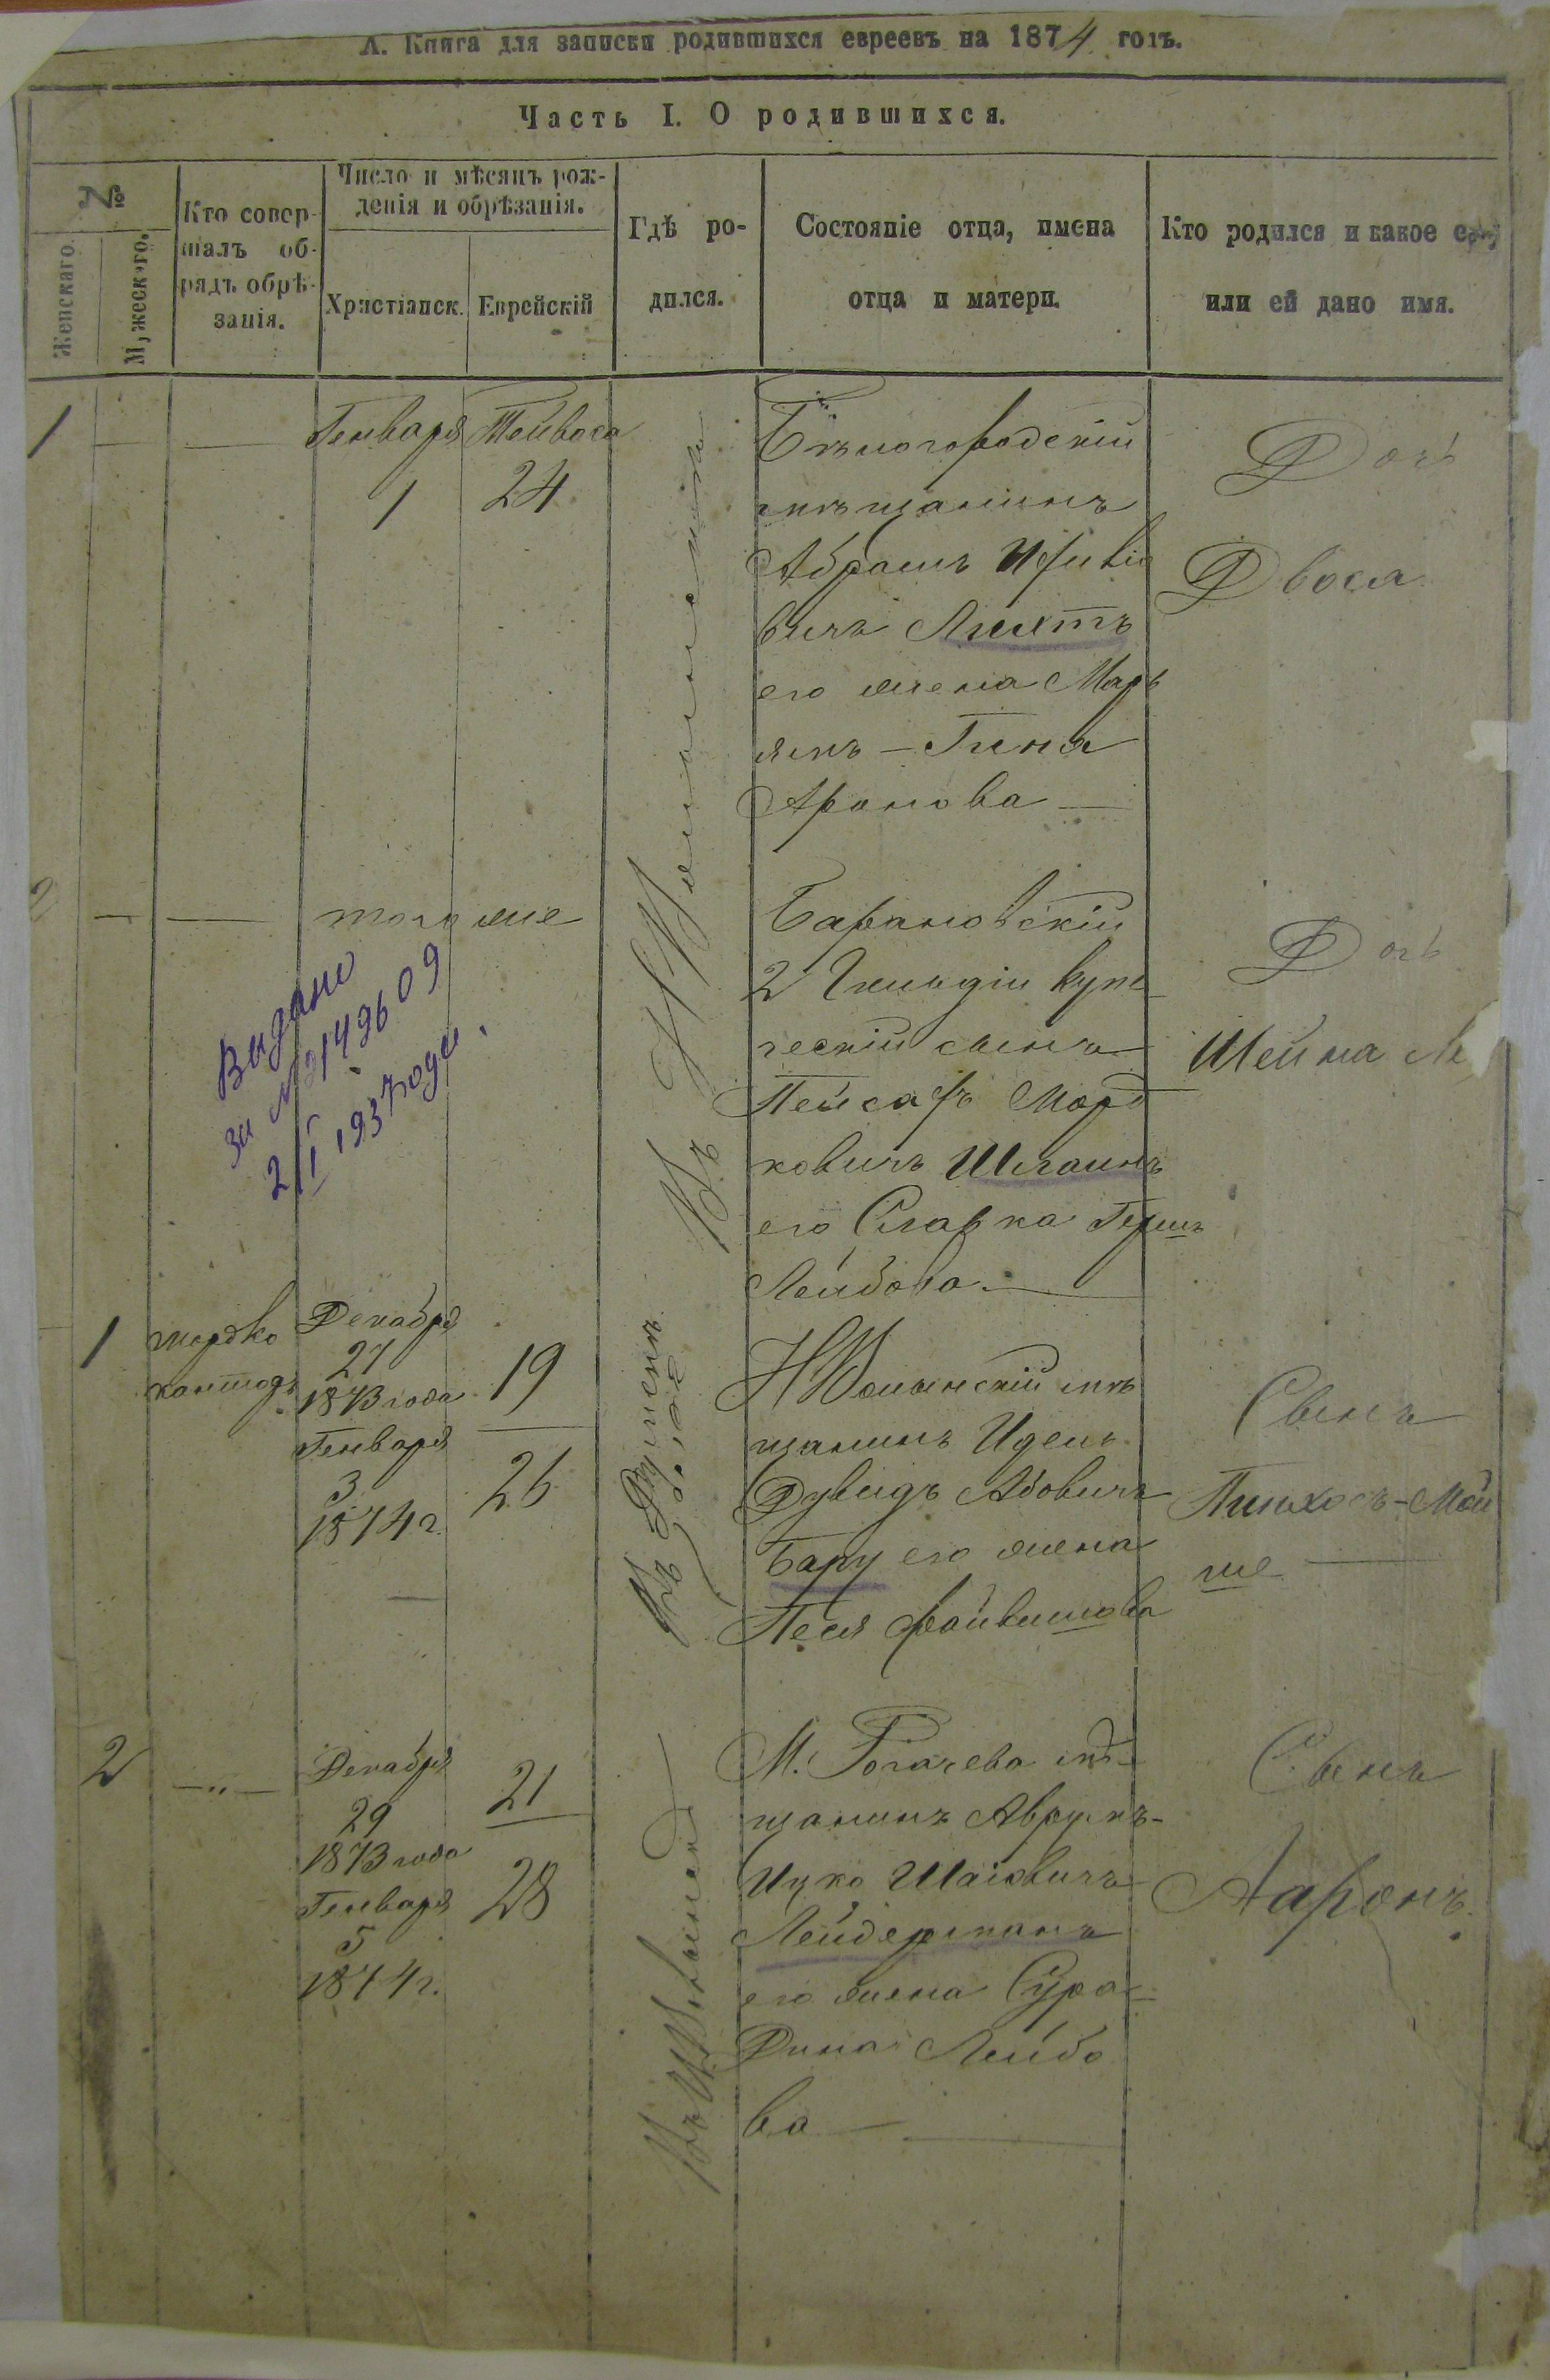 А. Книга для записки родившихся евреевъ на 1874 годъ.
Часть I. О родившихся.
№
Женскаго.
Мужескаго.
Кто совер-
шалъ об-
рядъ обрѣ-
занія.
Число и мѣсяцъ рож-
денія и обрѣзанія.
Христіанск.
Еврейскій
Гдѣ ро-
дился.
Состояніе отца, имена
отца и матери.
Кто родился и какое ему
или ей дано имя.
1
Генваря
1
Тейвеса
24
Бѣлогородскій
мѣщанинъ
Абрамъ
вичъ Лихтъ
его жена Марь
ямъ - Гиня
Аронова
Дочь
Двося
2
того же
Барановскій
2 Гильдіи купе
ческій сынъ
Пейсахъ Морд
ковичъ Шпаинъ
его Славка Герш
Лейбова
Дочь
Шейна
Выдано
за №
2/I 1937 года.
1
Мордко
Декабря
27
1873 года
Генваря
3
1874 г.
19
26
НВолынскій мѣ
щанинъ Идель
Дувидъ Абовичъ
Бару его жена
Песя Файвишова
Сынъ
Пинхосъ-Мой
ше
2
—"—
Декабря
29
1873 года
Генваря
5
1874 г.
21
28
М. Рогачева мѣ-
щанинъ Аврумъ-
Ицко Шаіовичъ
Лейдерманъ
его жена Сура-
Дина Лейбо
ва
Сынъ
Ааронъ.